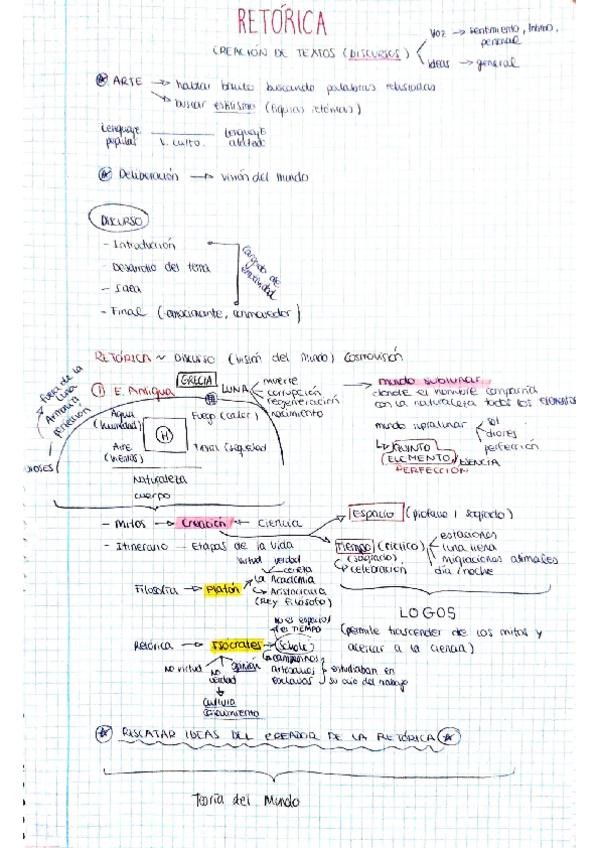 RETÓRICA
CREACIÓN DE TEXTOS (DISCURSOS)
Voz → sentimiento, íntimo, personal
Ideas → general
ARTE → hablar bonito buscando palabras
→ buscar estilismo (figuras retóricas)
Lenguaje popular L. culto. Lenguaje
Deliberación → visión del mundo
DISCURSO
- Introducción
- Desarrollo del tema
- Final (emocionante, conmovedor)
Cargado de emotividad
RETÓRICA ~ DISCURSO (visión del mundo) Cosmovisión
fuera de la Luna
Armonía
perfección
① E. Antigua
GRECIA
LUNA
muerte
corrupción
regeneración
nacimiento
→ mundo sublunar
donde el hombre compartía
con la naturaleza todos los ELEMENTOS
Agua (humedad)
Fuego (calor)
H
Aire
Tierra (sequedad)
DIOSES
mundo supralunar
sol
dioses
perfección
QUINTO
ELEMENTO / ESENCIA
PERFECCIÓN
Naturaleza
cuerpo
- Mitos → Creación ← Ciencia
- Itinerario — Etapas de la vida
Espacio (profano / sagrado)
Tiempo (cíclico)
(sagrado)
celebración
estaciones
luna llena
migraciones animales
día / noche
Filosofía → Platón
virtud verdad
La Academia
Aristocracia
(Rey filósofo)
LOGOS
(permite trascender de los mitos y
acercar a la ciencia)
Retórica → Isócrates
no es espacio
es TIEMPO
(Scholé)
No virtud
No verdad
opinión
Cultivo
Conocimiento
campesinos
artesanos
esclavos
estudiaban en
su ocio del trabajo
RESCATAR IDEAS DEL CREADOR DE LA RETÓRICA
Teoría del Mundo